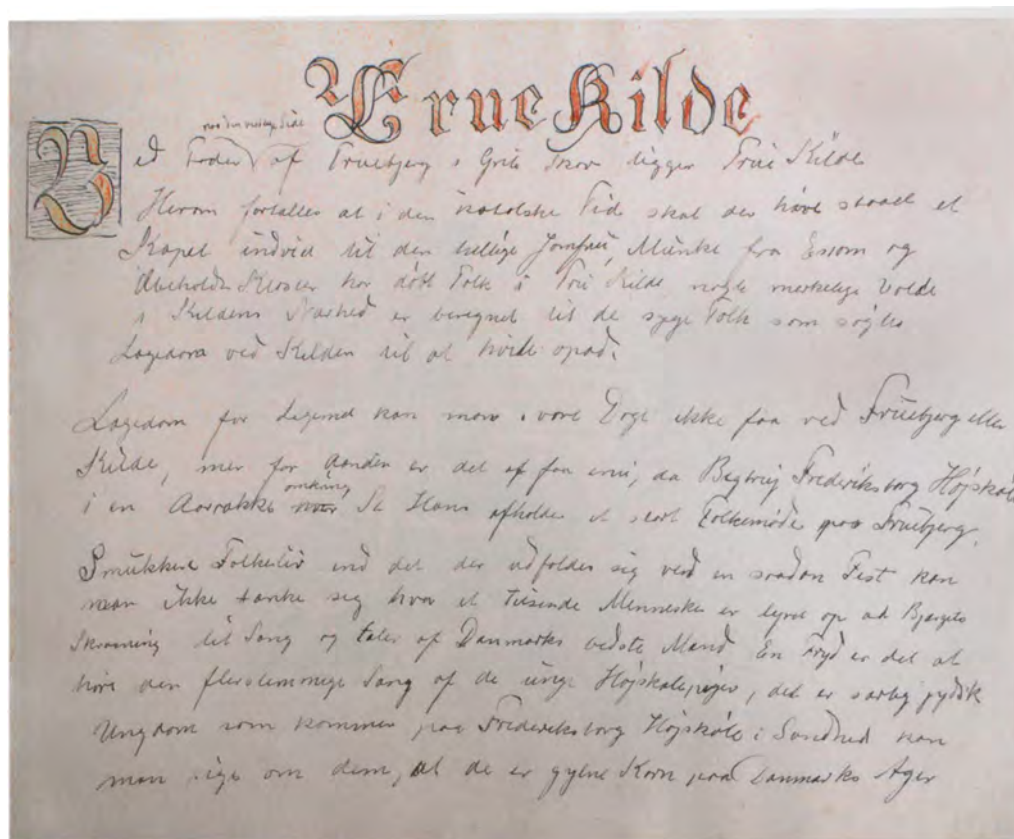 Frue Kilde
Ved Foden af Fruebjerg i Gribskov ligger Frue Kilde
Herom fortælles at i den katolske Tid skal der have staaet et
Kapel indviet til den hellige Jomfru, Munke fra Essom og
Æbelholdts Kloster har døbt Folk i Frue Kilde nogle mærkelige Volde
i Kildens Nærhed er beregnet til de syge Folk som søgte
Lægedom ved Kilden til at hvile opad.
Lægedom for Legemet kan man i vore Dage ikke faa ved Fruebjerg eller
Kilde, men for Aanden er det at faa, da Begtrup Frederiksborg Højskole
i en Aarrække omkring St Hans afholder et stort Folkemøde paa Fruebjerg.
Smukkere Folkeliv end det der udfolder sig ved en saadan Fest kan
man ikke tænke sig hvor et tusinde Mennesker er lyret op ad Bjergets
Skraaning til Sang og taler af Danmarks bedste Mænd En Fryd er det at
høre den flerstemmige Sang af de unge Højskolepiger, det er særlig jydsk
Ungdom som kommer paa Frederiksborg Højskole i Sandhed kan
man sige om dem, at de er gyldne Korn paa Danmarks Ager